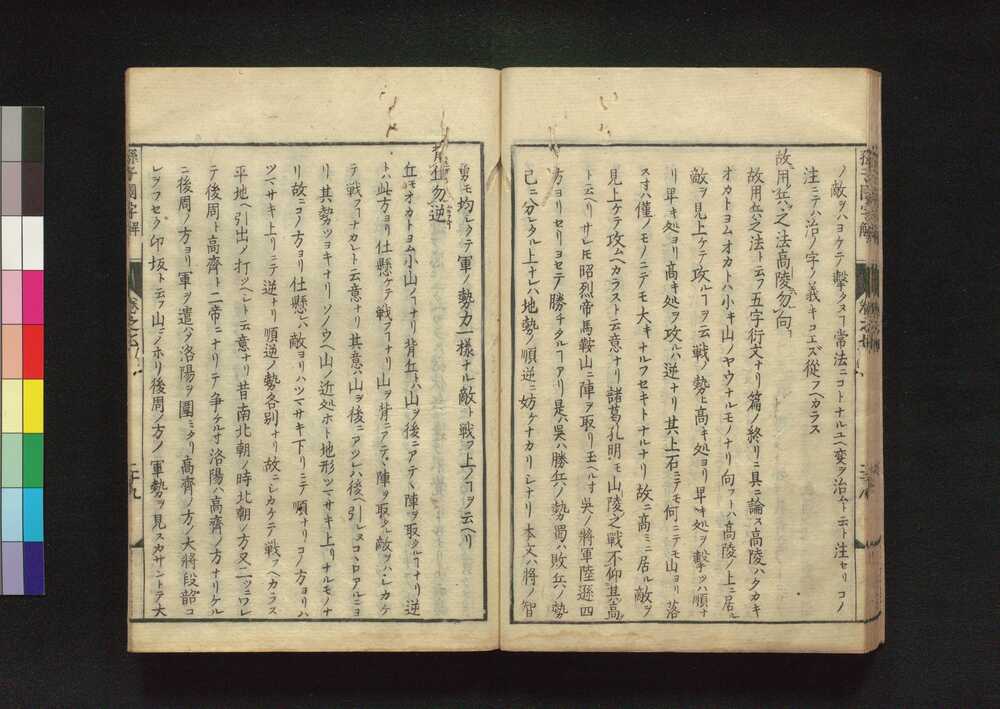 ノ敵ヲハヨケテ撃タス丆常法ニコトナルユヘ変ヲ治ムト云ト注セリコノ
注ニテハ治ノ字ノ義キコエズ従フヘカラス
故用兵之法高陵勿向
故用兵之法ト云フ五字衍文ナリ篇ノ終リニ具ニ論ス高陵ハタカキ
オカトヨムオカトハ小キ山ノヤウナルモノナリ向フトハ高陵ノ上ニ居ル
敵ヲ見上ケテ攻ル丆ヲ云戦ノ勢ヒ高キ処ヨリ卑キ処ヲ撃ツハ順ナ
リ卑キ処ヨリ高キ処ヲ攻ルハ逆ナリ其上石ニテモ何ニテモ山ヨリ落
スオハ僅ノモノニテモ大キナルフセキトナルナリ故ニ高ミニ居ル敵ヲ
見上ケテ攻ムヘカラスト云意ナリ諸葛孔明モ山陵之戦不仰其高
ト云ヘリサレ𪜈昭烈帝馬鞍山ニ陣ヲ取リ玉ヘルオ呉ノ将軍陸遜四
方ヨリセリヨセテ勝チタル丆アリ是ハ呉ハ勝兵ノ勢蜀ハ敗兵ノ勢
已ニ分レタル上ナレハ地勢ノ順逆ニ妨ケナカリシナリ本文ハ将ノ智
孫子國字解
勇モ均シクテ軍ノ勢力一様ナル敵ト戦フ上ノ丆ヲ云ヘリ
背丘勿逆
丘モオカトヨム小山ノ丆ナリ背丘トハ山ヲ後ニアテヽ陣ヲ取タル丆ナリ逆
トハ此方ヨリ仕懸ケテ戦フ丆ナリ山ヲ背ニアテヽ陣ヲ取タル敵ヲハシカケ
テ戦フ丆ナカレト云意ナリ其意ハ山ヲ後ニアツレハ後ヘ引レヌコヽロアルニヨ
リ其勢ツヨキナリソノウヘ山ノ近処ホト地形ツマサキ上リナルモノナ
リ故ニコノ方ヨリ仕懸レハ敵ヨリハツマサキ下リニテ順ナリコノ方ヨリハ
ツマサキ上リニテ逆ナリ順逆ノ勢各別ナリ故ニシカケテ戦フヘカラス
平地ヘ引出ノ打ツヘシト云意ナリ昔南北朝ノ時北朝ノ方又二ツニワレ
テ後周ト高齊ト二帝ニナリテ争ケルオ洛陽ハ高齊ノ方ナリケル
ニ後周ノ方ヨリ軍ヲ遣ハシ洛陽ヲ圍ミタリ高齊ノ方ノ大将段韶コ
レヲフセク印坂ト云フ山ニノホリ後周ノ方ノ軍勢ヲ見スカサントテ大
孫子國字解
二十九